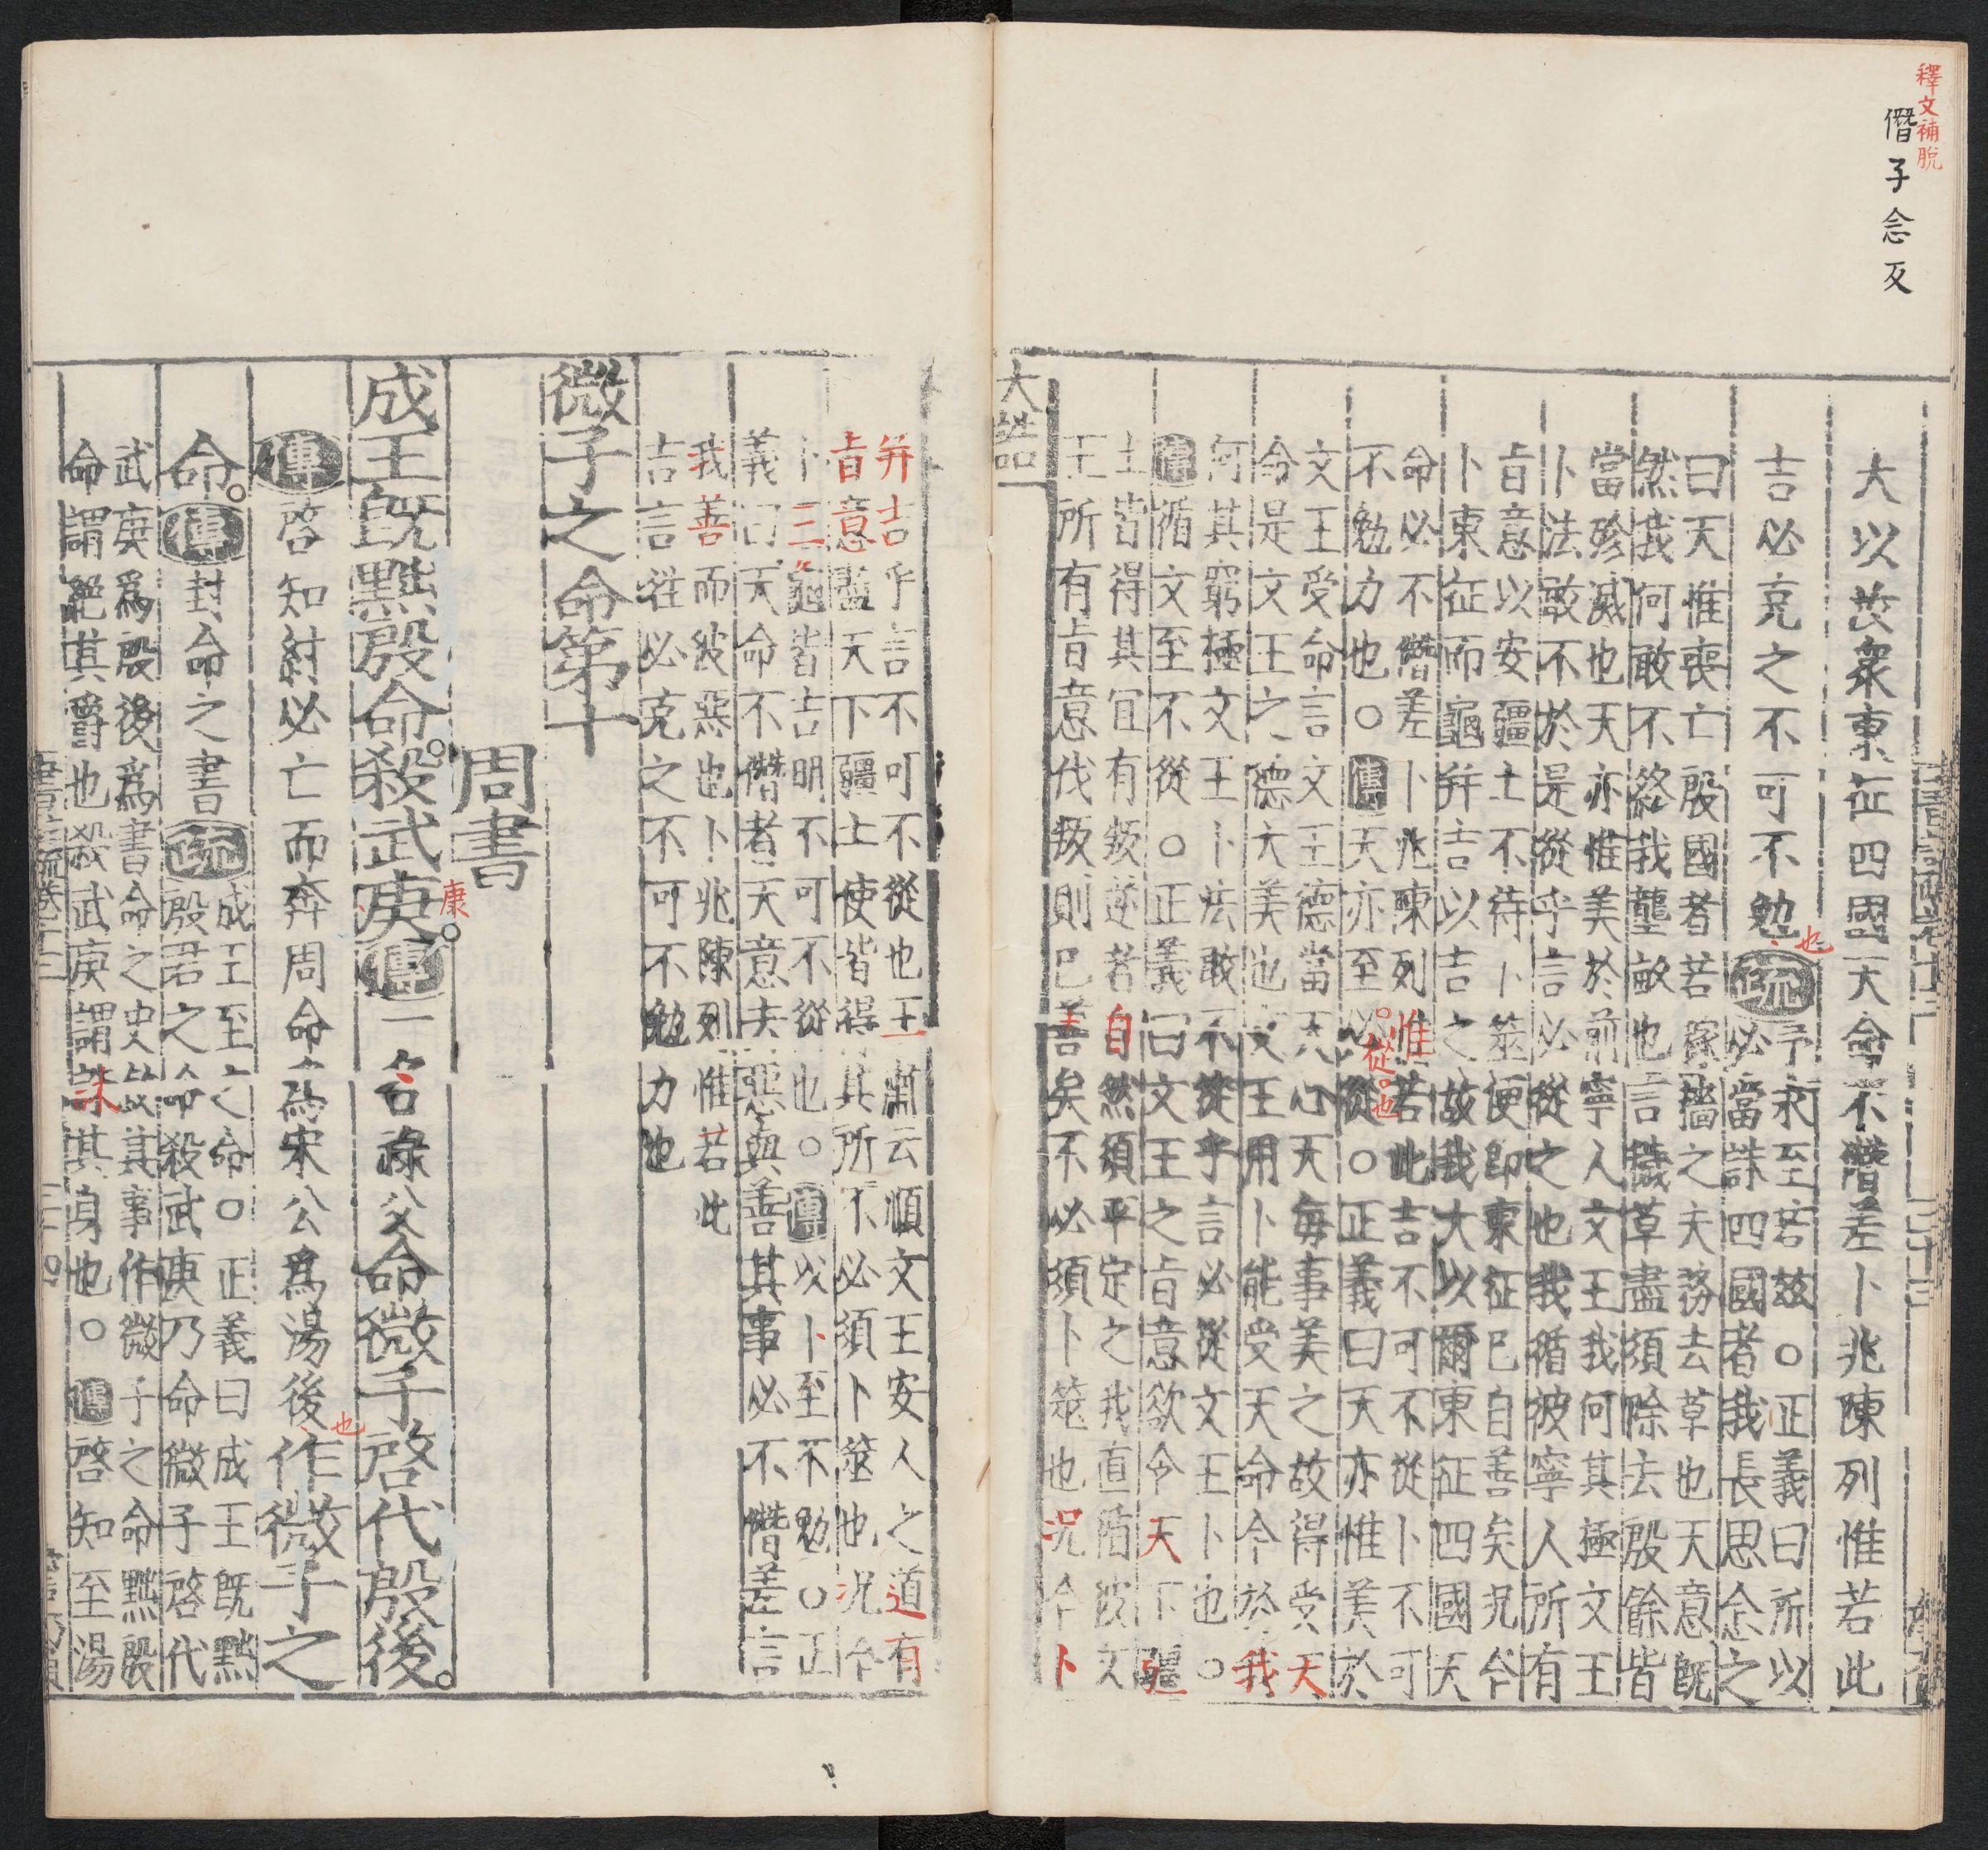 釋文補脫
僭子念反
大以茂衆東征四國天命不僭差卜兆陳列惟若此
吉必克之不可不勉
也
疏
予永至若茲○正義曰所以
必當誅四國者我長思念之
曰天惟喪亡殷國者若穡之夫務去草也天意旣
然我何敢不終我壟畝也言穢草盡須除去殷餘皆
當殄滅也天亦惟美於前寧人文王我何其極文王
卜法敢不於是從乎言必從之也我循彼寧人所有
旨意以安疆土不待卜筮便即東征巳自善矣况今
卜東征而龜并吉以吉之故我大以爾東征四國天
命必不僭差卜兆陳列惟若此吉不可不從卜不可
不勉力也○傳天亦至必從○正義曰天亦惟美於
從也
文王受命言文王德當天心天每事美之故得受天
命是文王之德大美也文王用卜能受天命今於我
何其窮極文王卜法敢不從乎言必從文王卜也○
傳循文至不從○正義曰文王之旨意欲令天下疆
土皆得其宜有叛逆者自然須平定之我直循彼文
王所有旨意伐叛則巳善矣不必須卜筮也况今卜
大誥
并吉乎言不可不從也王肅云順文王安人之道有
旨意盡天下疆土使皆得其所不必須卜筮也况今
卜三龜皆吉明不可不從也○傳以卜至不勉○正
義曰天命不僭者天意去惡與善其事必不僭差言
我善而彼惡也卜兆陳列惟若此
吉言往必克之不可不勉力也
微子之命第十
周書
成王旣黜殷命殺武庚傳一名祿父命微子啓代殷後
康
傳啓知紂必亡而奔周命爲宋公爲湯後作微子之
也
命傳封命之書疏
成王至之命○正義曰成王旣黜
殷君之命殺武庚乃命微子啓代
武庚爲殷後爲書命之史敘其事作微子之命黜殷
命謂絕其爵也殺武庚謂誅其身也○傳啓知至湯